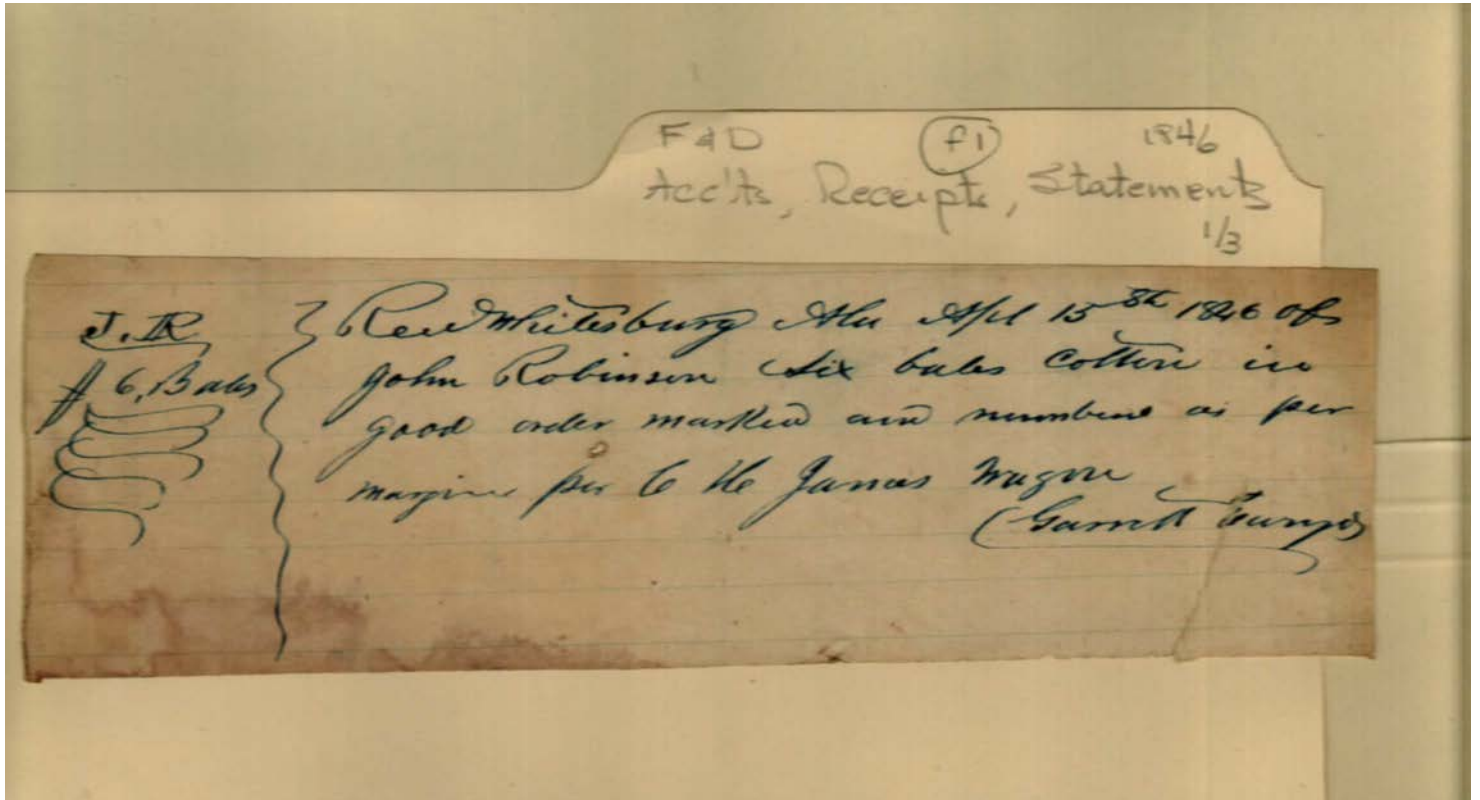 F & D (f1) 1846
Acc'ts, Receipts, Statements
1/3
J. R
# 6, Bales
Recd Whitesburg Ala Apl 15th 1846 of
John Robinson Six bales Cotton in
good order marked and numbered as per
margin per the James Wagon
Garrett